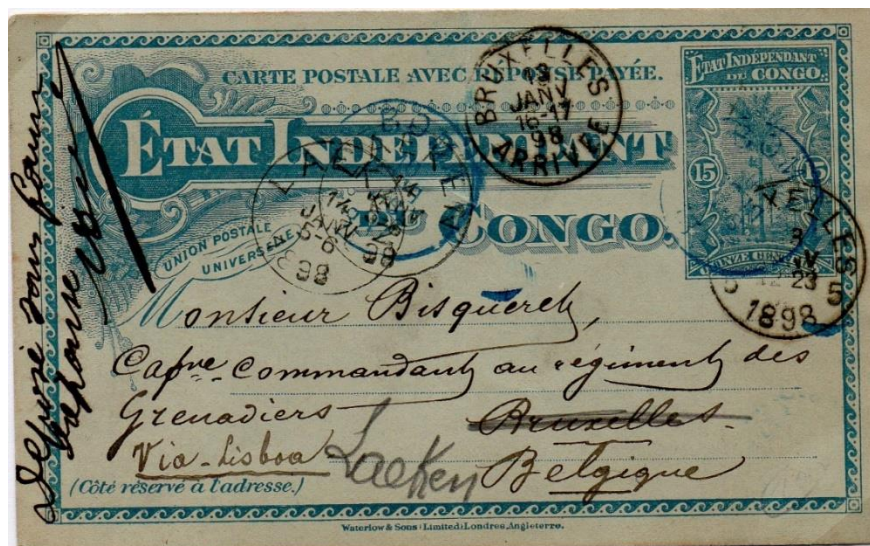 CARTE POSTALE AVEC RÉPONSE PAYÉE.
ÉTAT INDÉPENDANT
DU CONGO.
ETAT INDEPENDANT
DU CONGO
15 15
QUINZE CENTIMES
UNION POSTALE
UNIVERSELLE
BRUXELLES
13
JANV
16-17
98
ARRIVÉE
LAEKEN
14
JANV
5-6
98
BRUXELLES 5
1898
Monsieur Bisqueret,
Capne Commandant au régiment des
Grenadiers Bruxelles
Via Lisboa Laeken Belgique
(Côté réservé à l'adresse.)
Waterlow & Sons Limited, Londres, Angleterre.